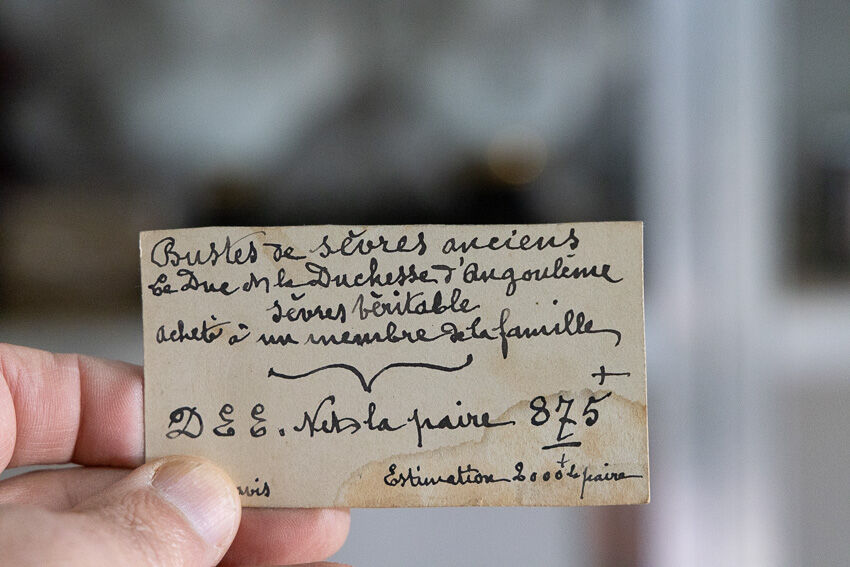 Bustes de sèvres anciens
Le Duc et la Duchesse d'Angoulème
sèvres vèritable
acheté à un membre de la famille
+
D E E. Net la paire 875
Estimation 2000 la paire